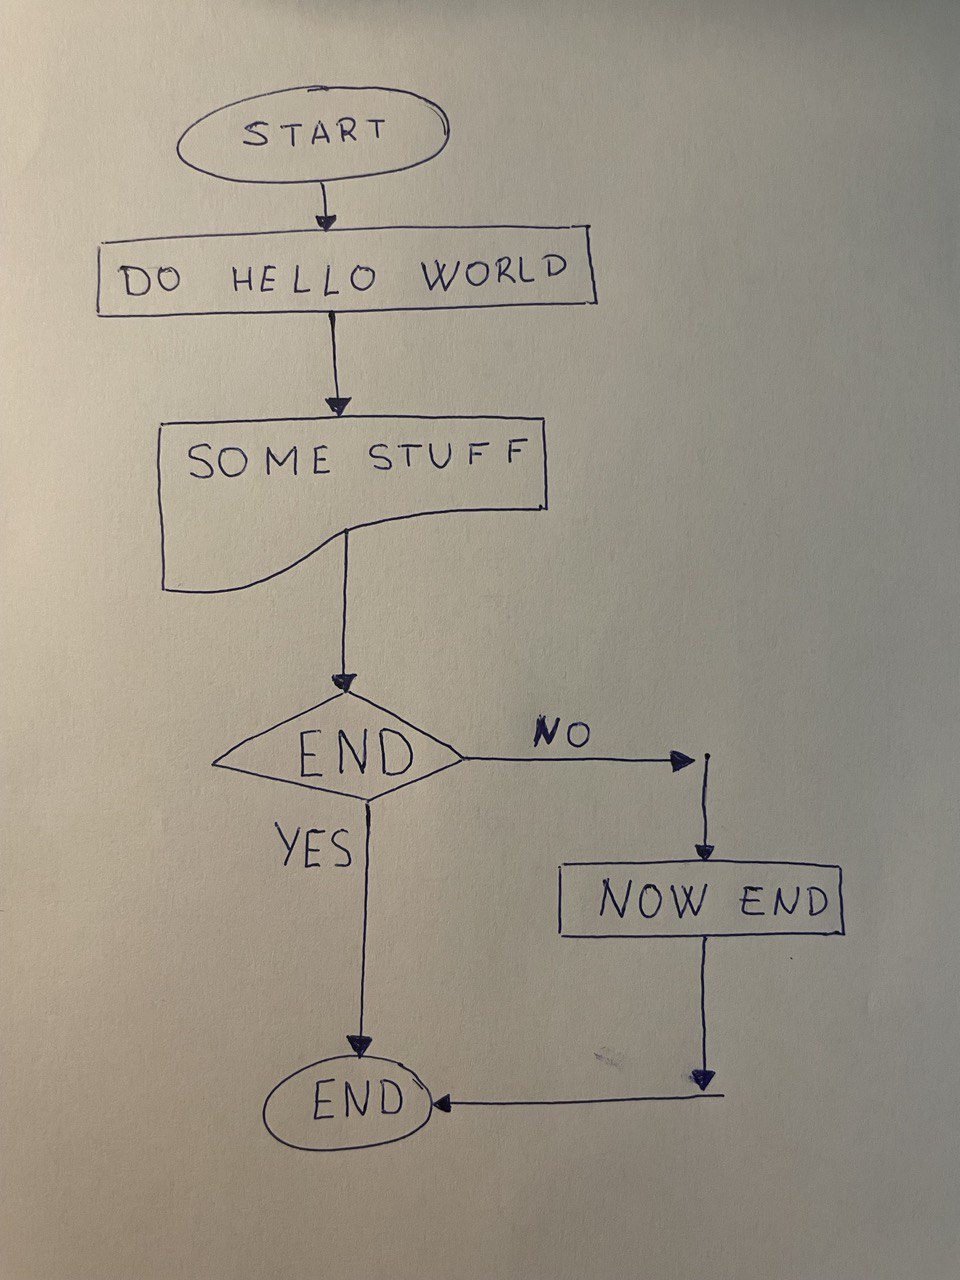 START
DO HELLO WORLD
SOME STUFF
END
NO
YES
NOW END
END